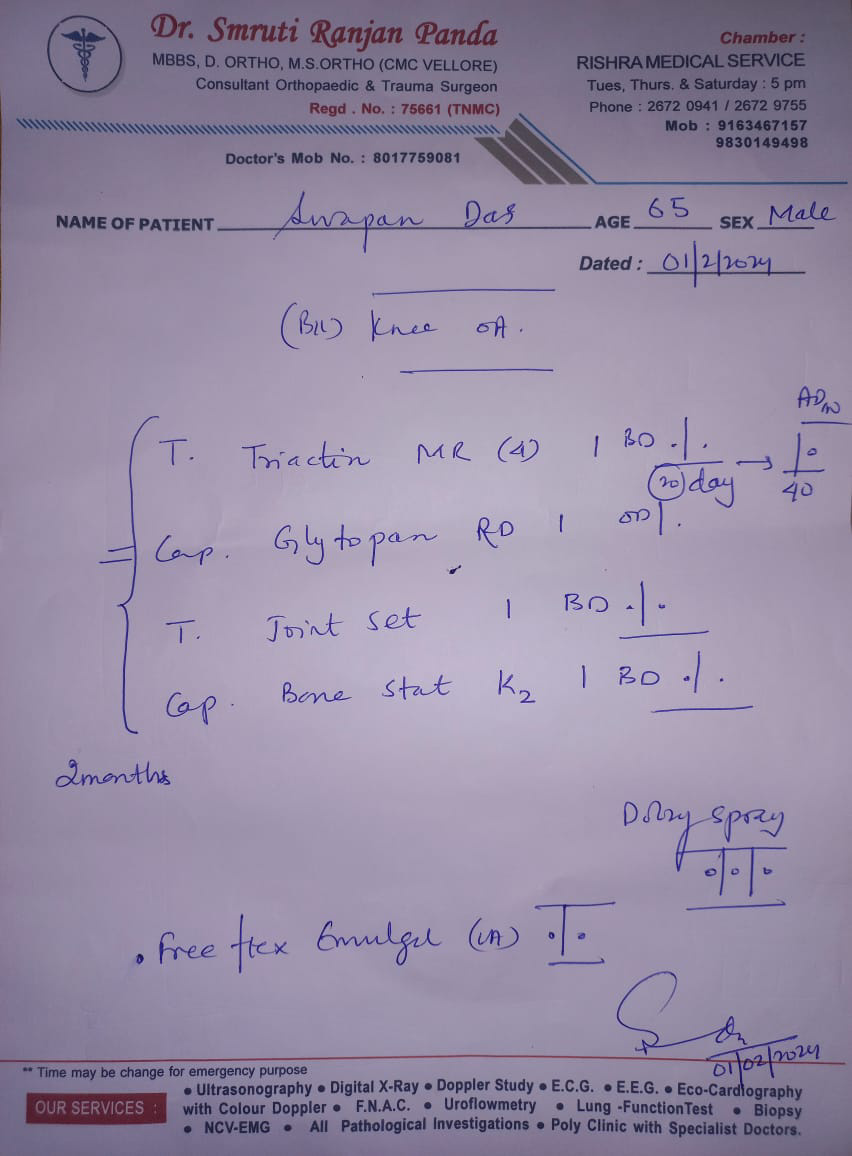 Dr. Smruti Ranjan Panda
MBBS, D. ORTHO, M.S.ORTHO (CMC VELLORE)
Consultant Orthopaedic & Trauma Surgeon
Regd . No. : 75661 (TNMC)
Doctor's Mob No. : 8017759081
Chamber :
RISHRA MEDICAL SERVICE
Tues, Thurs. & Saturday : 5 pm
Phone : 2672 0941 / 2672 9755
Mob : 9163467157
9830149498
NAME OF PATIENT Swapan Das AGE 65 SEX Male
Dated : 01/2/2024
Knee OA.
T. MR (4) 1 BD .|. → |o
20 day 40
Cap. RD 1 OD |.
T. Joint set 1 BD .|.
Cap. Bone stat K2 1 BD .|.
2months
spray
o|o|o
• Free flex Emulgel (LA) .|.
01/02/2024
** Time may be change for emergency purpose
OUR SERVICES :
• Ultrasonography • Digital X-Ray • Doppler Study • E.C.G. • E.E.G. • Eco-Cardiography
with Colour Doppler • F.N.A.C. • Uroflowmetry • Lung -FunctionTest • Biopsy
• NCV-EMG • All Pathological Investigations • Poly Clinic with Specialist Doctors.